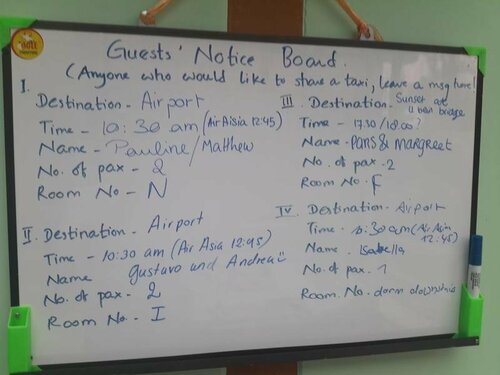 Guests' Notice Board.
(Anyone who would like to share a taxi, leave a msg here!
I.
Destination - Airport
Time - 10:30 am (Air Aisia 12:45)
Name - Pauline/Matthew
No. of pax - 2
Room No - N
II. Destination - Airport
Time - 10:30 am (Air Asia 12:45)
Name Gustavo und Andrea
No. of pax - 2
Room No. - I
III. Destination - Sunset at
U bein bridge
Time - 17.30/18.00?
Name - PARIS & MARGREET
No. of pax - 2
Room No. F
IV. Destination - Airport
Time - 10:30 am (Air Asia
12:45)
Name - Isabella
No. of pax - 1
Room. No - dorm downstairs